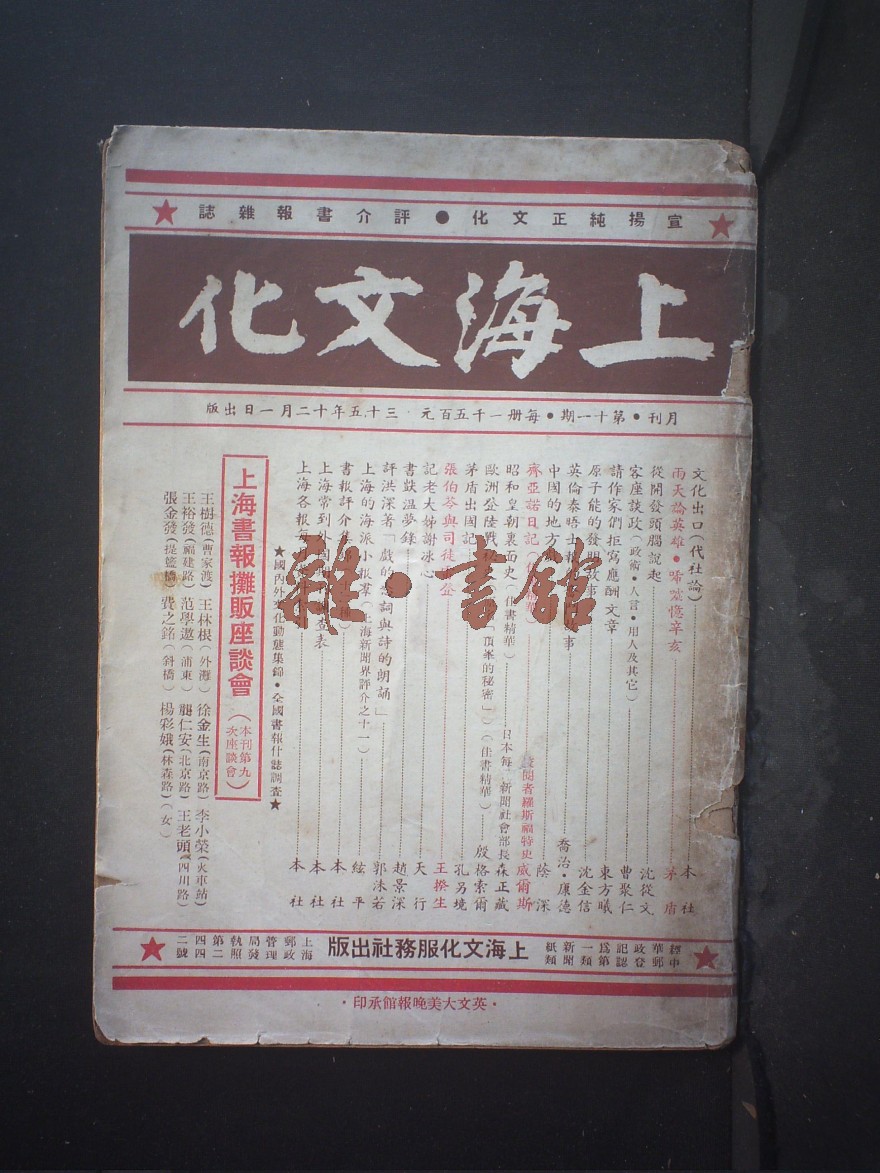 宣揚純正文化●評介書報雜誌
上海文化
月刊●第十一期●每册一千五百元 三十五年十二月一日出版
文化出口(代社論)本社
雨天論英雄●茅盾
從開發頭腦說起沈從文
客座談政(政術●人言●用人及其它)曹聚仁
請作家們拒寫應酬文章東方曦
原子能的發明故事沈金信
英倫泰晤士報事喬治●康德
中國的地方陸深
齊亞諾日記(佳書精華)設閱者羅斯福特史威爾斯
昭和皇朝裏面史(佳書精華)日本每日新聞社會部長森正藏
歐洲登陸戰「頂峯的秘密」(佳書精華)殷格索爾
茅盾出國記孔另境
張伯苓與司徒王揆生
記老大姊謝冰心天行
書獃溫夢錄趙景深
評洪深著「戲的念詞與詩的朗誦」郭沫若
上海的海派小報羣(上海新聞界評介之十一)絃平
書報評介集本社
上海常到外國表本社
上海各報每本社
★國內外文化動態集錦●全國書報什誌調查★
上海書報攤販座談會(本刊第九次座談會)
王樹德(曹家渡) 王林根(外灘) 徐金生(南京路) 李小榮(火車站)
王裕發(福建路) 范學遨(浦東) 龔仁安(北京路) 王老頭(四川路)
張金發(提籃橋) 費之銘(斜橋) 楊彩娥(林森路)(女)
雜●書館
經中華郵政登記認爲第一類新聞紙類
上海文化服務社出版
上海郵政管理局發執照第二四四二號
●英文大美晚報館承印●